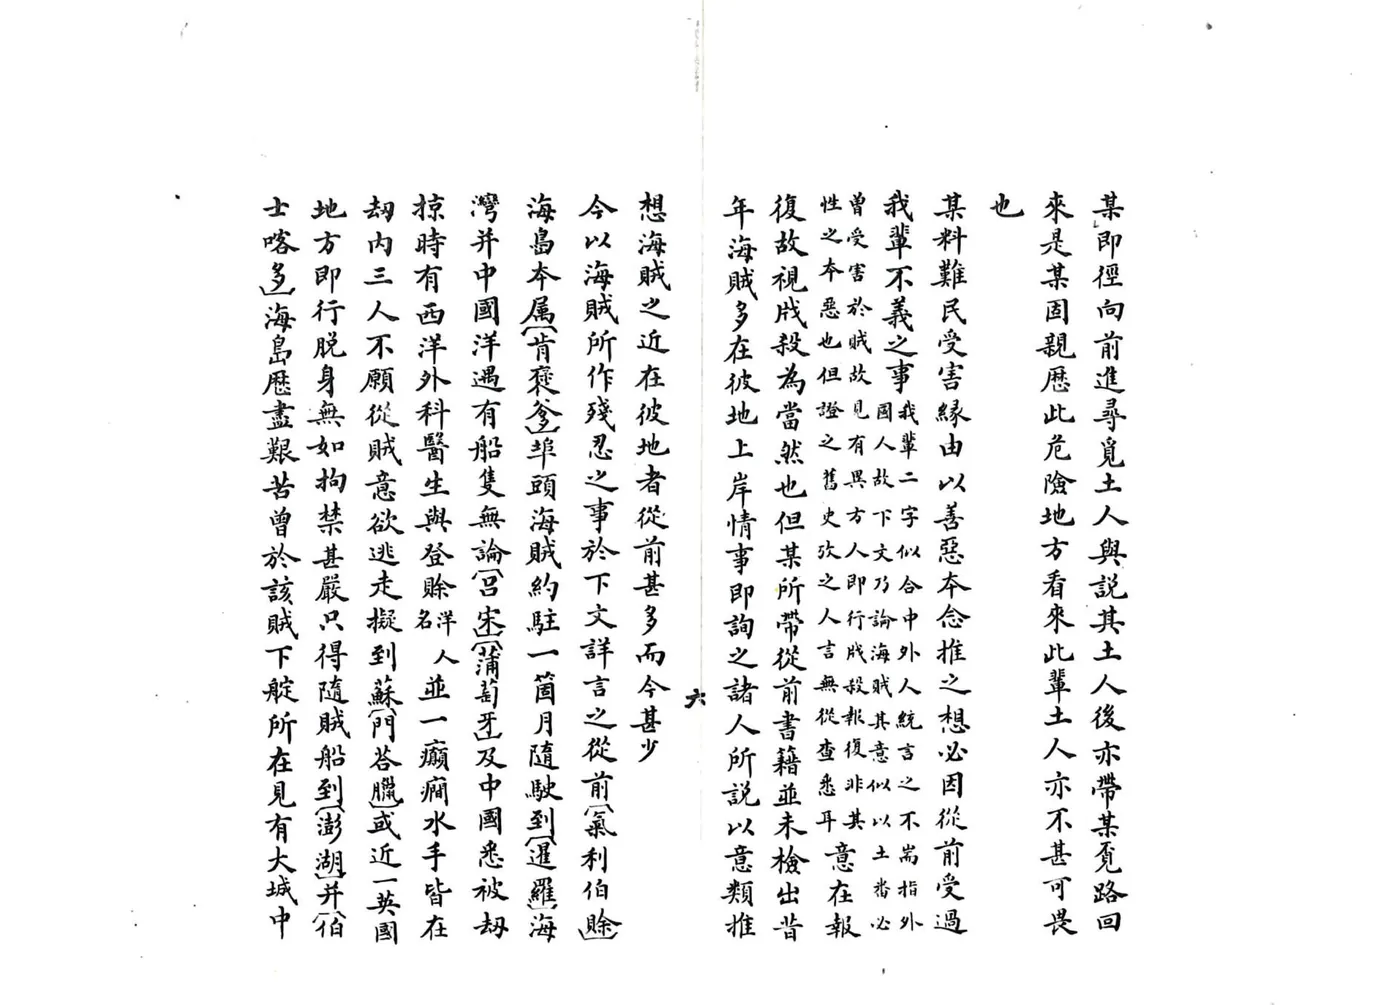 某即徑向前進尋覓土人與說其土人後亦帶某覔路回
來是某固親歷此危險地方看來此輩土人亦不甚可畏
也
某料難民受害緣由以善惡本念推之想必因從前受過
我輩不義之事我輩二字似合中外人統言之不耑指外
國人故下文乃論海賊其意似以土畨必
曾受害於賊故見有異方人即行戕殺報復非其
性之本惡也但證之舊史攷之人言無從查悉耳意在報
復故視戕殺為當然也但某所帶從前書籍並未檢出昔
年海賊多在彼地上岸情事即詢之諸人所說以意類推
六
想海賊之近在彼地者從前甚多而今甚少
今以海賊所作殘忍之事於下文詳言之從前氣利伯賒
海島本属肯褒爹埠頭海賊約駐一箇月隨駛到暹羅海
灣并中國洋遇有船隻無論呂宋蒲萄牙及中國悉被刼
掠時有西洋外科醫生與登賒洋人名並一癲癇水手皆在
刼內三人不願從賊意欲逃走擬到蘇門荅臘或近一英國
地方即行脫身無如拘禁甚嚴只得隨賊船到澎湖并伯
士喀多海島歷盡艱苦曾於該賊下艇所在見有大城中